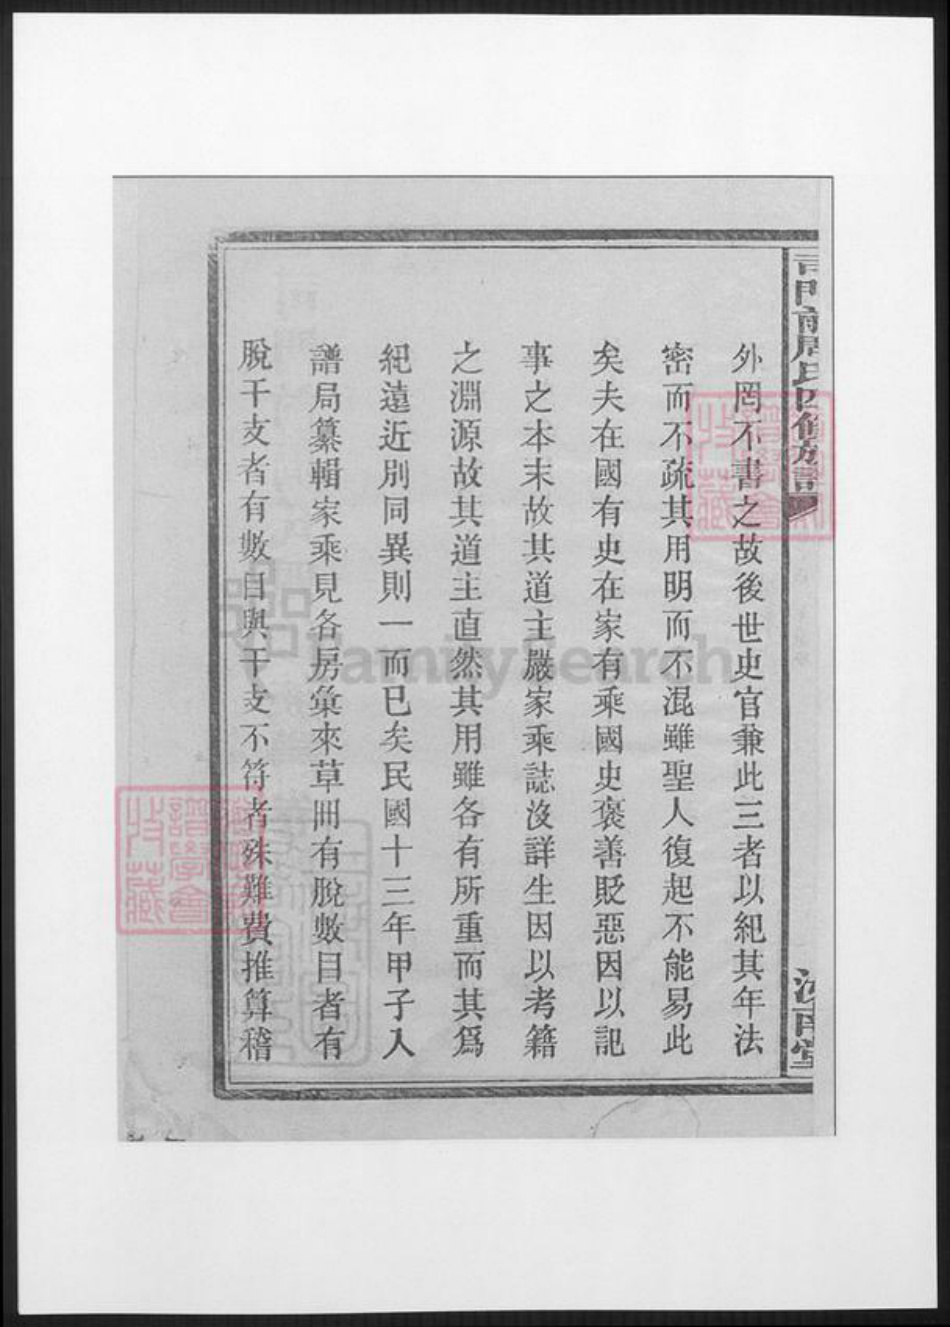 外罔不書之故後世史官兼此三者以紀其年法
密而不疏其用明而不混雖聖人復起不能易此
矣夫在國有史在家有乘國史褒善貶惡因以記
事之本末故其道主嚴家乘誌沒詳生因以考籍
之淵源故其道主直然其用雖各有所重而其爲
紀遠近別同異則一而已矣民國十三年甲子入
譜局纂輯家乘見各房彙來草冊有脫數目者有
脫干支者有數目與干支不符者殊難費推算稽
FamilySearch